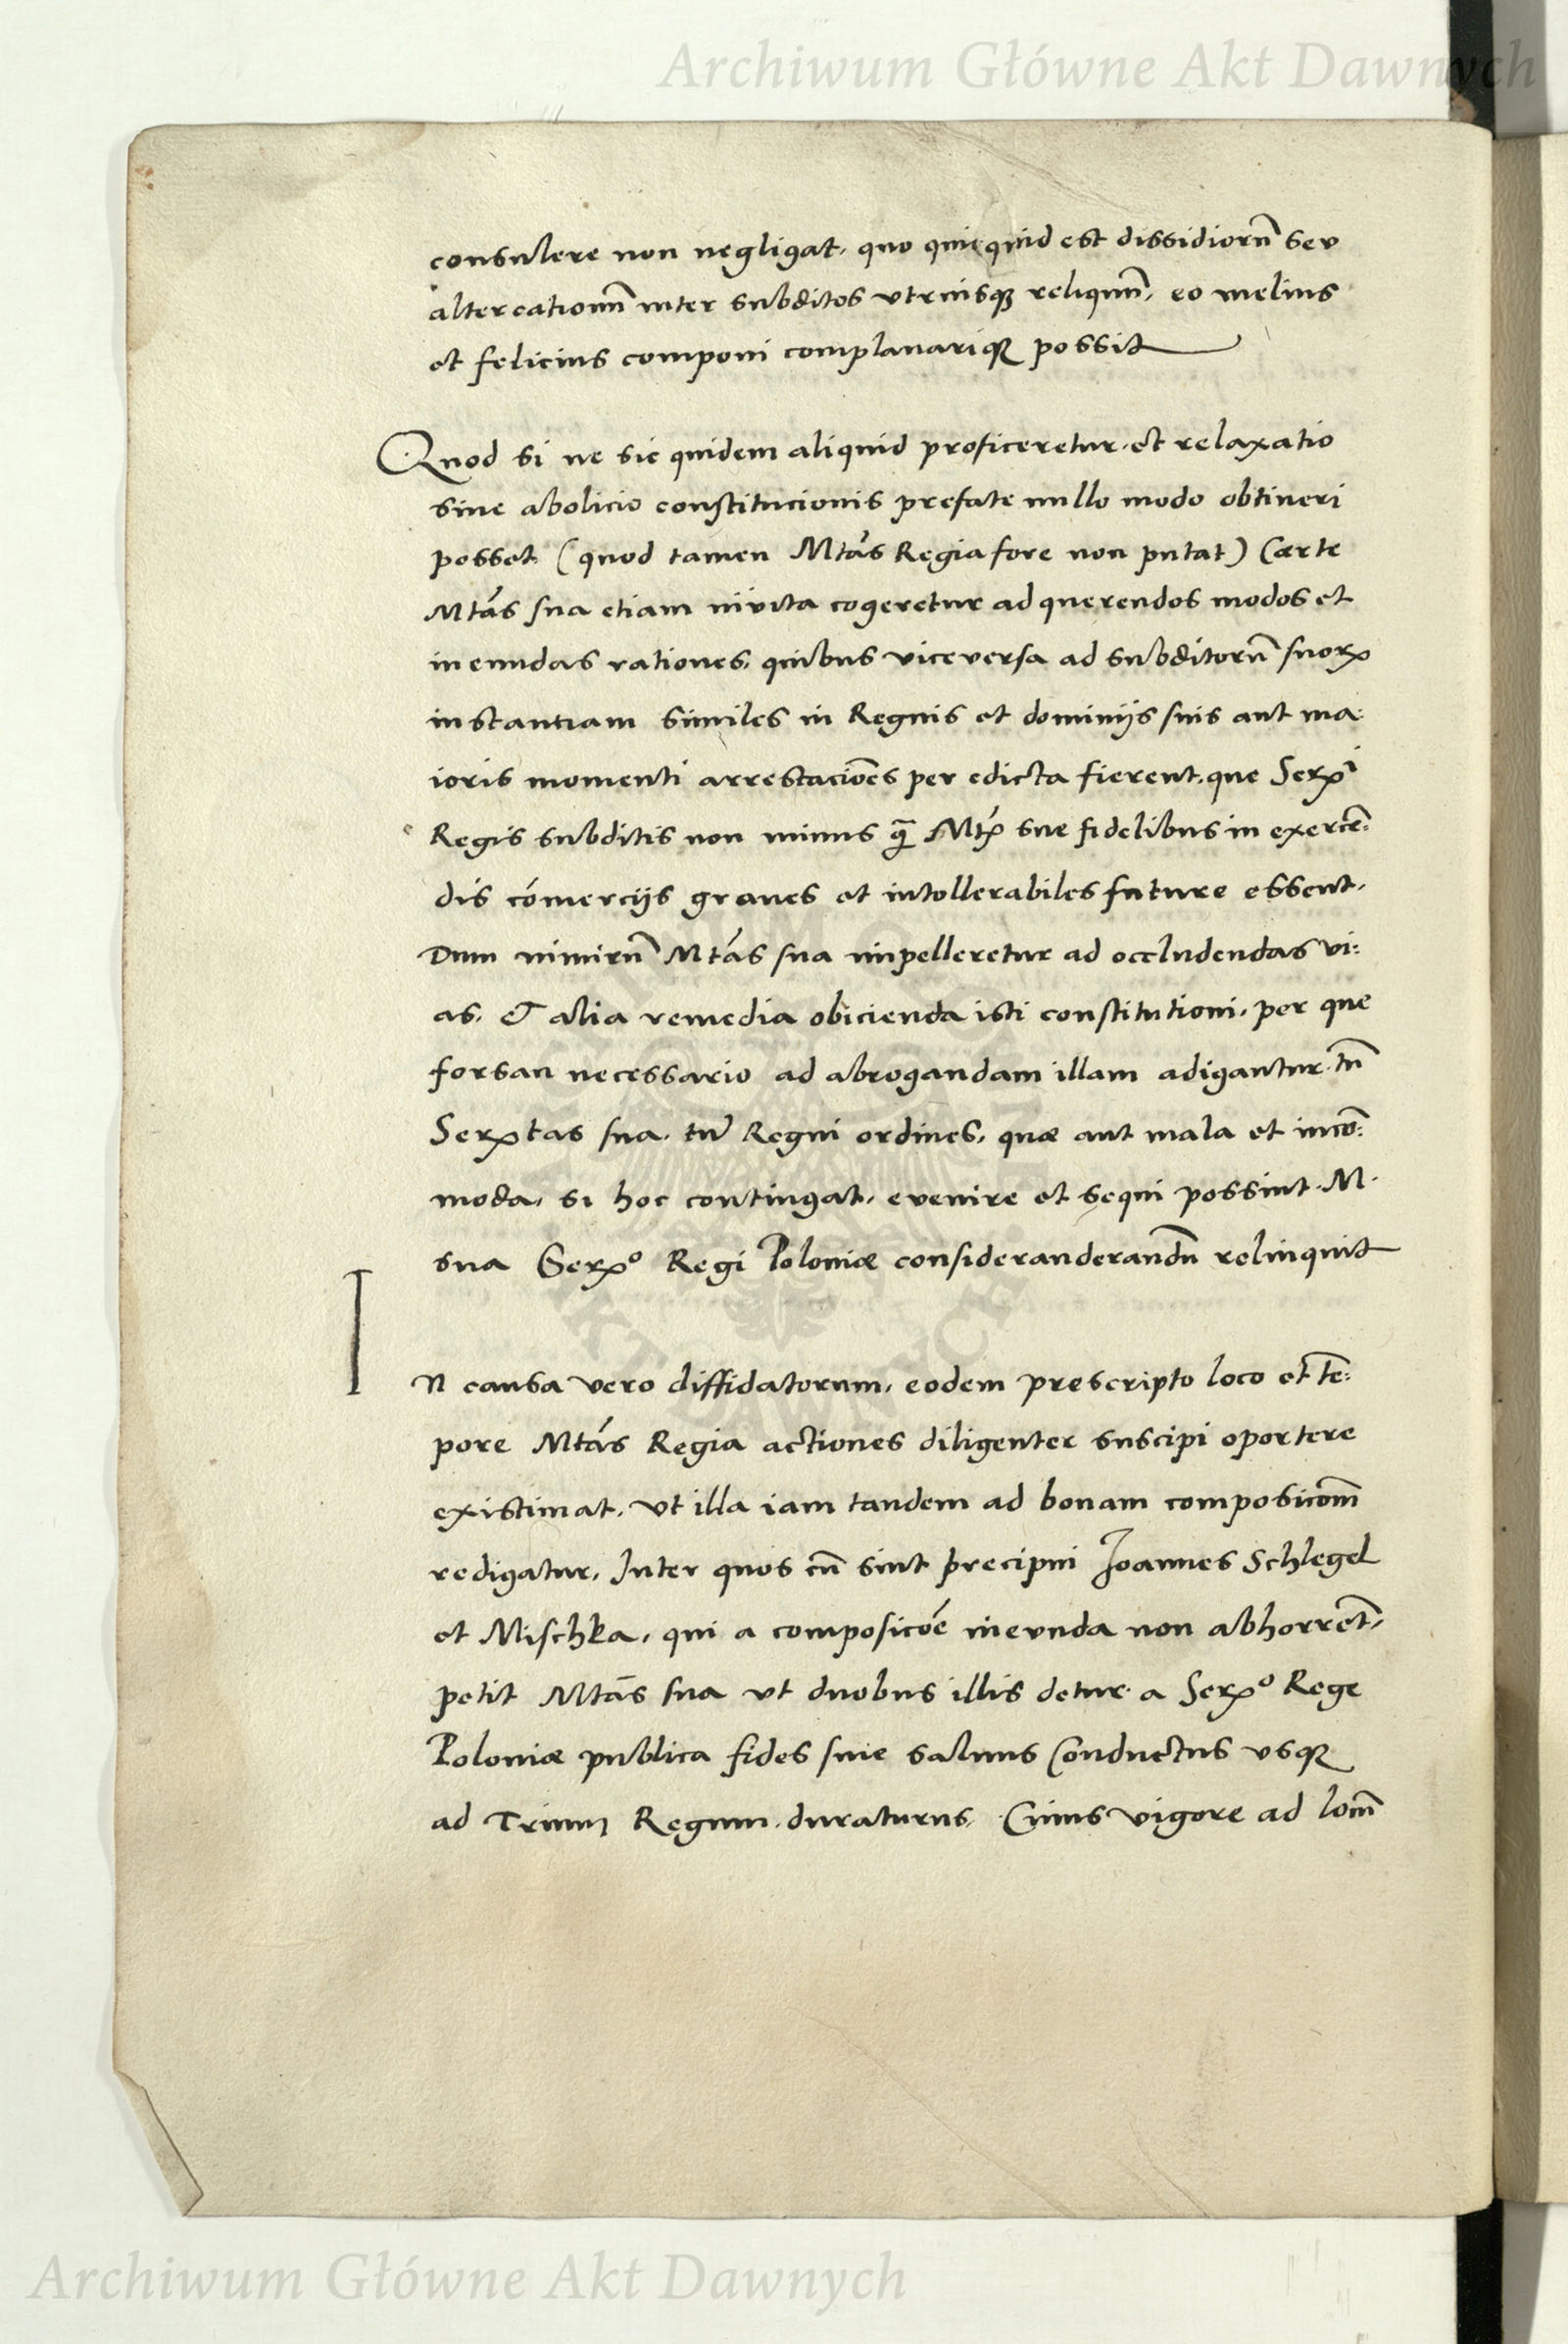 Archiwum Główne Akt Dawnych
consulere non negligat, quo quicquid est dissidiorū seu
altercationū inter subditos vtriusqꝫ reliquū, eo melius
et felicius componi complanariqꝫ possit
Quod si ne sic quidem aliquid proficeretur, et relaxatio
sine abolicio constitucionis prefate nullo modo obtineri
posset (quod tamen Mtās Regia fore non putat) Cærte
Mtās sua etiam inuita cogeretur ad querendos modos et
ineundas rationes, quibus viceversa ad subditorū suorꝝ
instantiam similes in Regnis et dominijs suis aut ma:
ioris momenti arrestaciōes per edicta fierent, que Serꝝⁱ
Regis subditis non minus q̄ Mtꝭ sue fidelibus in exercē:
dis cōmercijs graues et intollerabiles future essent,
Dum nimirū Mtās sua impelleretur ad occludendas vi:
as, Et alia remedia obicienda isti constitutioni, per que
forsan necessario ad abrogandam illam adigantur, tū
Serꝝtas sua, tū Regni ordines, quæ aut mala et incō:
moda, si hoc contingat, evenire et sequi possint. M.
sua Serꝝº Regi Poloniæ consideranderandū relinquit
In causa vero diffidatorum, eodem prescripto loco et tē:
pore Mtās Regia actiones diligenter suscipi oportere
existimat, vt illa iam tandem ad bonam composicōm
redigatur, Inter quos cū sint precipui Joannes Schlegel
et Mischka, qui a composicōe ineunda non abhorrēt,
petit Mtās sua vt duobus illis detur a Serꝝº Rege
Poloniæ publica fides siue saluus Conductus vsqꝫ
ad Trium Regum duraturus, Cuius vigore ad locū
ARCHIWUM GŁÓWNE AKT DAWNYCH
Archiwum Główne Akt Dawnych